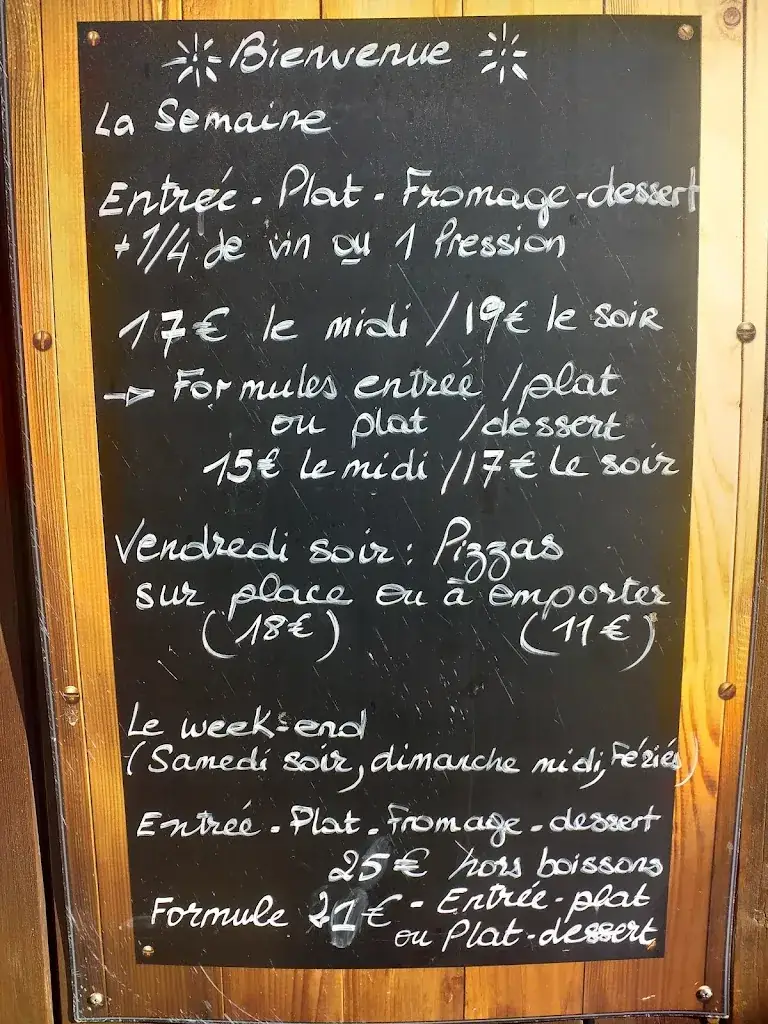 Bienvenue
La Semaine
Entrée - Plat - Fromage - dessert
+ 1/4 de vin ou 1 Pression
17€ le midi / 19€ le soir
→ Formules entreé / plat
ou plat / dessert
15€ le midi / 17€ le soir
Vendredi soir : Pizzas
sur place ou à emporter
(18€) (11€)
Le week-end
(Samedi soir, dimanche midi, Fériés)
Entreé - Plat - Fromage - dessert
25€ hors boissons
Formule 21€ - Entrée - plat
ou Plat - dessert